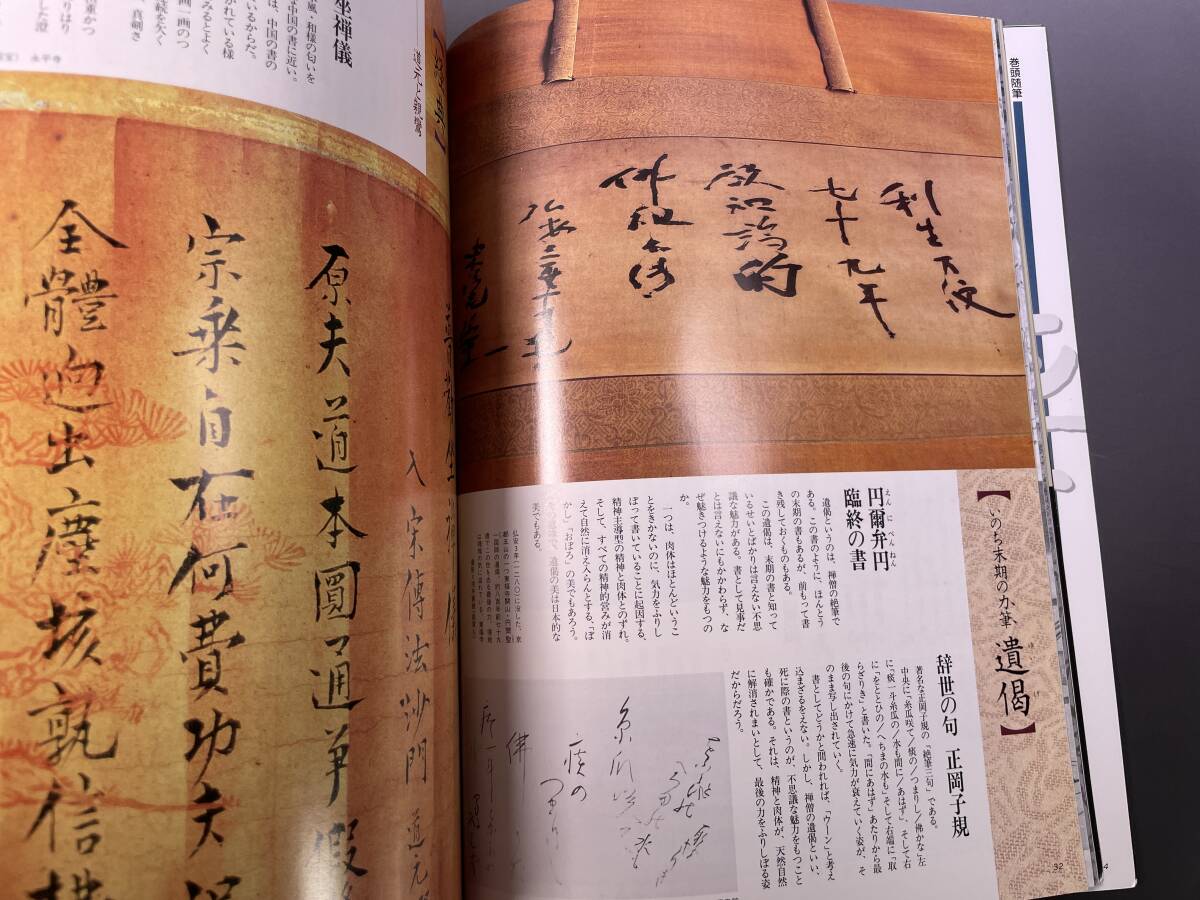 巻頭随筆
【いのち末期の力筆 遺偈】
ゆいげ
利生方便
七十九年
欲知端的
佛祖不傳
弘安三年十月十五日
東福老
円爾弁円
えんにべんねん
臨終の書
遺偈というのは、禅僧の絶筆で
ある。この書のように、ほんとう
の末期の書もあるが、前もって書
き残しておくものもある。
この遺偈は、末期の書と知って
いるせいとばかりは言えない不思
議な魅力がある。書として見事だ
とは言えないにもかかわらず、な
ぜ魅きつけるような魅力をもつの
か。
一つは、肉体はほとんどいうこ
とをきかないのに、気力をふりし
ぼって書いていることに起因する、
精神主導型の精神と肉体とのずれ。
そして、すべての精神的営みが消
えて自然に消え入らんとする、「ぼ
かし」「おぼろ」の美でもあろう。
遺偈の美は日本的な
美でもある。
弘安3年(一二八〇)に没した、京
辞世の句 正岡子規
著名な正岡子規の「絶筆三句」である。
中央に「糸瓜咲て/痰の/つまりし/佛かな」左
に「痰一斗糸瓜の/水も間に/あはず」、そして右
に「をととひの/へちまの水も」そして右端に「取
らざりき」と書いた。「間にあはず」あたりから最
後の句にかけて急速に気力が衰えていく姿が、そ
のまま写し出されていく。
書としてどうかと問われれば、「ウーン」と考え
込まざるをえない。しかし、禅僧の遺偈といい、
死に際の書というのが、不思議な魅力をもつこと
も確かである。それは、精神と肉体が、天然自然
に解消されまいとして、最後の力をふりしぼる姿
だからだろう。
糸瓜咲て
痰の
つまりし
佛
痰一斗
32
4
道元と親鸞
坐禅儀
風・和様の匂いを
は中国の書に近い。
ているからだ。
は、中国の書の
がれている様
画一画のつ
みるとよく
続を欠く
永平寺
入宋傳法沙門 道元
原夫道本圓通争假
宗乗自在何費功夫
全體迥出塵埃孰信